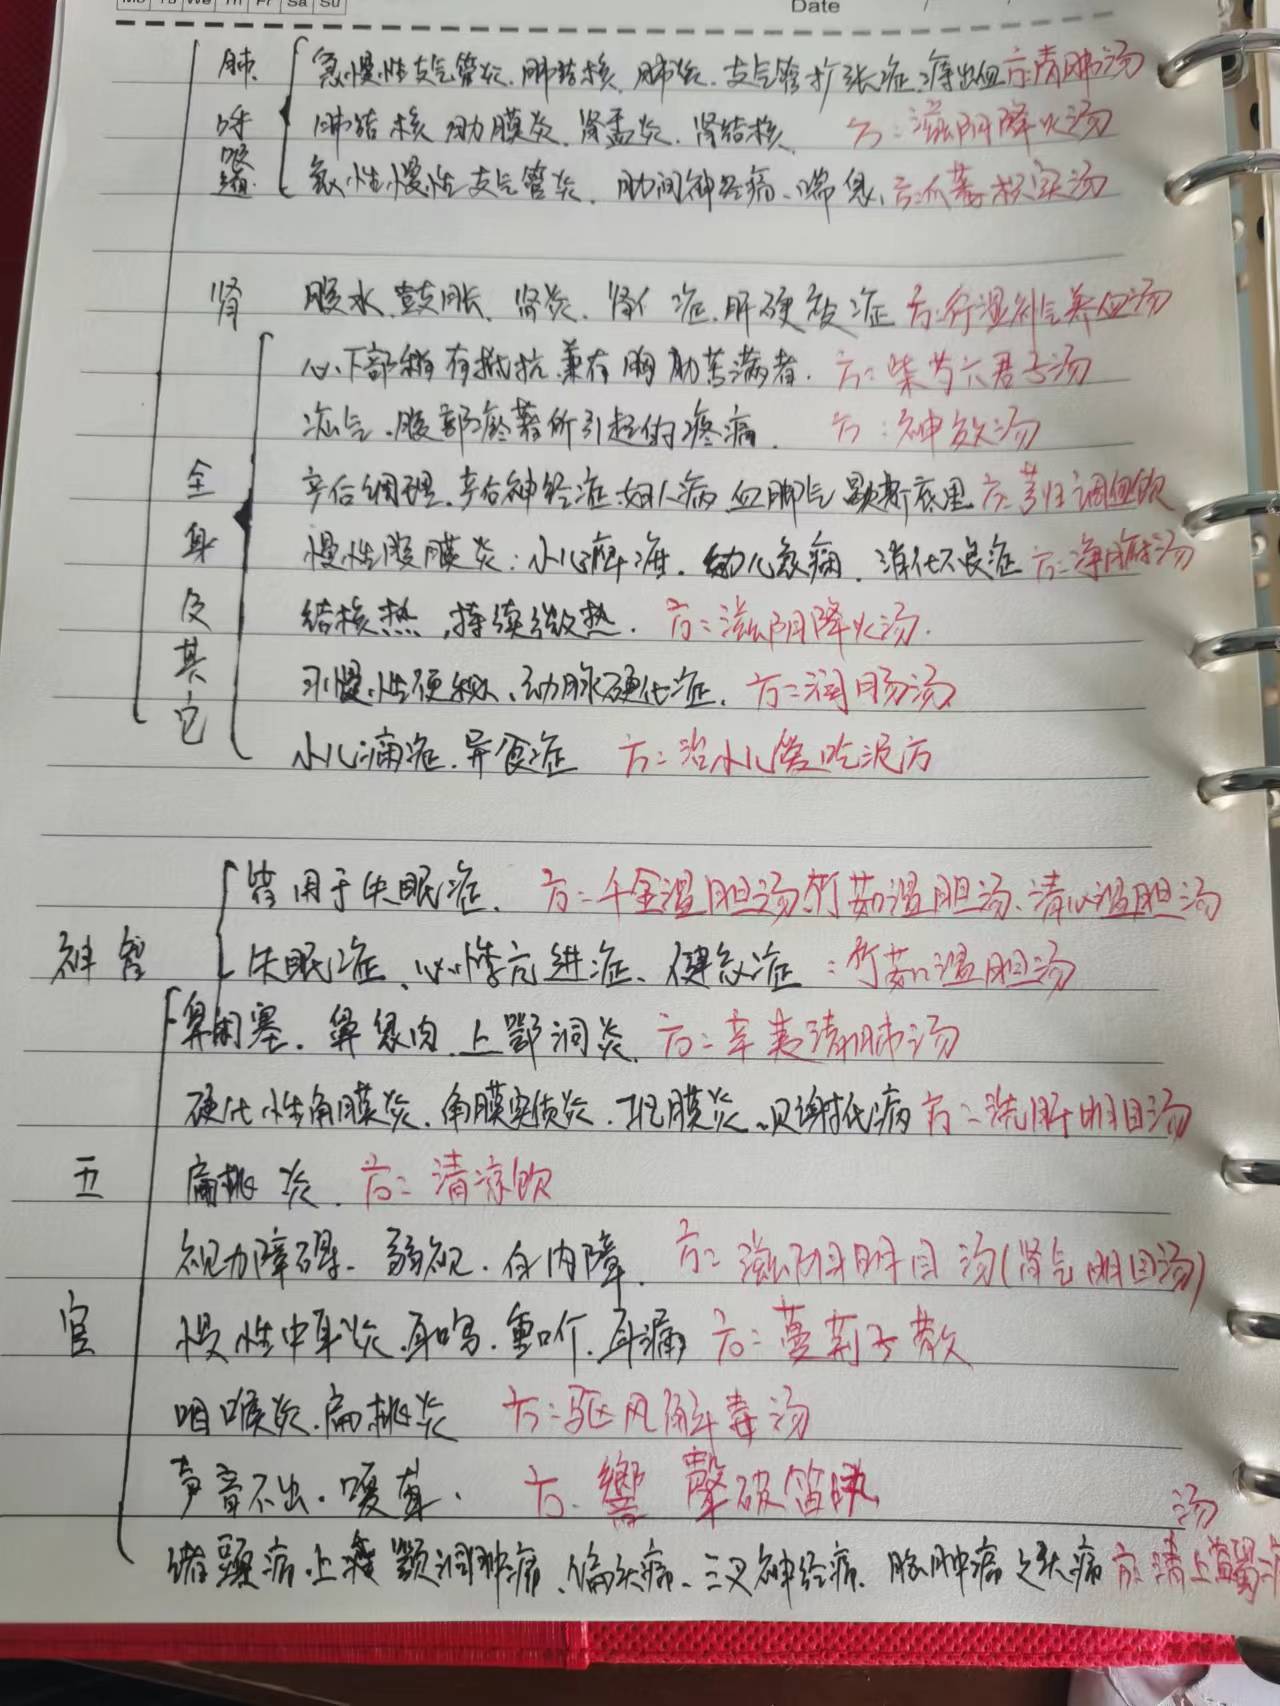 Mo Tu We Th Fr Sa Su
Date / /
肺 急慢性支气管炎、肺结核、肺炎、支气管扩张症、痔出血 方:清肺汤
呼吸道 肺结核 肋膜炎、肾盂炎、肾结核、 方:滋阴降火汤
慢性支气管炎、肋间神经痛、喘息、方:瓜蒌枳实汤
肾 腹水、鼓胀、肾炎、肾 症、肝硬变症 方:行湿补气养血汤
心下部稍有抵抗,兼有胸肋苦满者. 方:柴芍六君子汤
疝气、腹部瘀着所引起的疼痛. 方:神效汤
产后调理、产后神经症、妇人病、血脚气、歇斯底里 方:芎归调血饮
慢性腹膜炎:小儿 症、幼儿 、消化不良症 方:净腑汤
结核热,持续微热. 方:滋阴降火汤.
慢性便秘、动脉硬化症、方:润肠汤
小儿 症、异食症 方:治小儿 吃泥方
全身及其它
皆用于失眠症、方:千金温胆汤、竹茹温胆汤、清心温胆汤
神智 失眠症、心悸亢进症、健忘症:竹茹温胆汤
鼻闭塞、鼻息肉、上鄂洞炎、方:辛夷清肺汤
硬化性角膜炎、角膜实质炎、巩膜炎、贝谢氏病 方:洗肝明目汤
五 扁桃炎、方:清凉饮
视力障碍、弱视、白内障、方:滋阴明目汤(肾气明目汤)
官 慢性中耳炎、耳鸣、重听、耳漏 方:蔓荆子散
咽喉炎、扁桃炎 方:驱风解毒汤
声音不出、嗄声、 方:響聲破笛
诸頭痛、上 颚洞肿痛、偏头痛、三叉神经痛、脑肿瘤之头痛 方:清上蠲痛汤